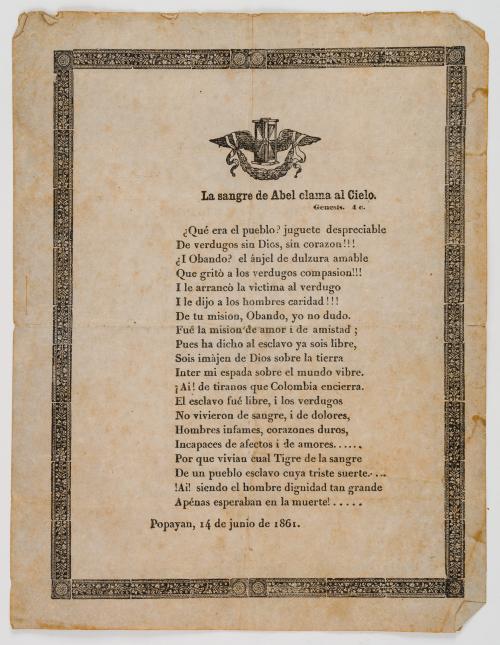 La sangre de Abel clama al Cielo.
Genesis. 4 c.
¿Qué era el pueblo? juguete despreciable
De verdugos sin Dios, sin corazon!!!
¿I Obando? el ánjel de dulzura amable
Que gritò a los verdugos compasion!!!
I le arrancò la victima al verdugo
I le dijo a los hombres caridad!!!
De tu mision, Obando, yo no dudo.
Fué la mision de amor i de amistad;
Pues ha dicho al esclavo ya sois libre,
Sois imàjen de Dios sobre la tierra
Inter mi espada sobre el mundo vibre.
¡Ai! de tiranos que Colombia encierra.
El esclavo fué libre, i los verdugos
No vivieron de sangre, i de dolores,
Hombres infames, corazones duros,
Incapaces de afectos i de amores......
Por que vivian cual Tigre de la sangre
De un pueblo esclavo cuya triste suerte.....
!Ai! siendo el hombre dignidad tan grande
Apénas esperaban en la muerte!.....
Popayan, 14 de junio de 1861.